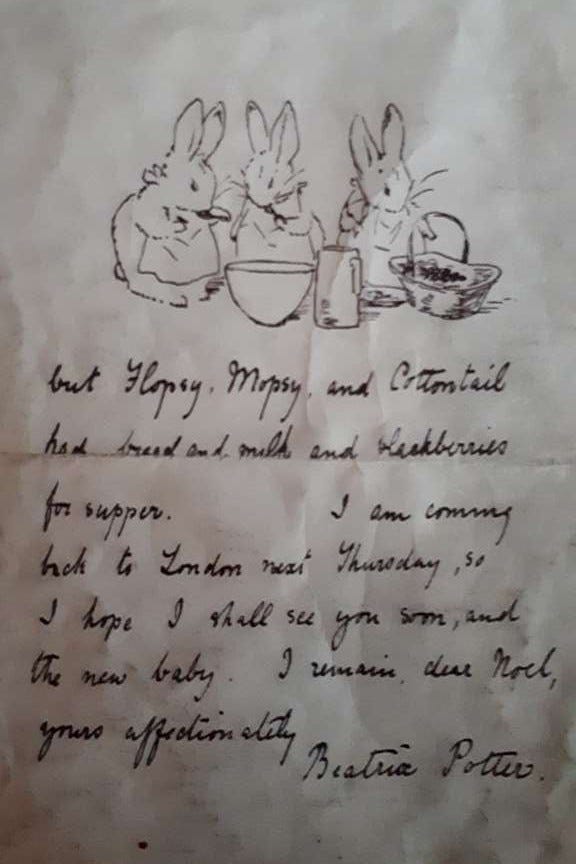 but Flopsy, Mopsy, and Cottontail
had bread and milk and blackberries
for supper. I am coming
back to London next Thursday, so
I hope I shall see you soon, and
the new baby. I remain, dear Noel,
yours affectionately
Beatrix Potter.